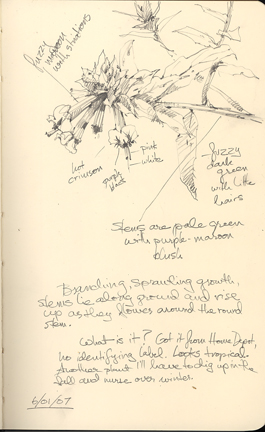 fuzzy
maroon
with
hot
crimson
purple
black
pink
-white
fuzzy
dark
green
with little
hairs
Stems are pale green
with purple-maroon
blush
Branching, sprawling growth,
stems lie along ground and rise
up as they flower around the round
stem.
What is it? Got it from Home Depot,
no identifying label. Looks tropical-
Another plant I'll have to dig up in the
fall and nurse over winter.
6/01/07